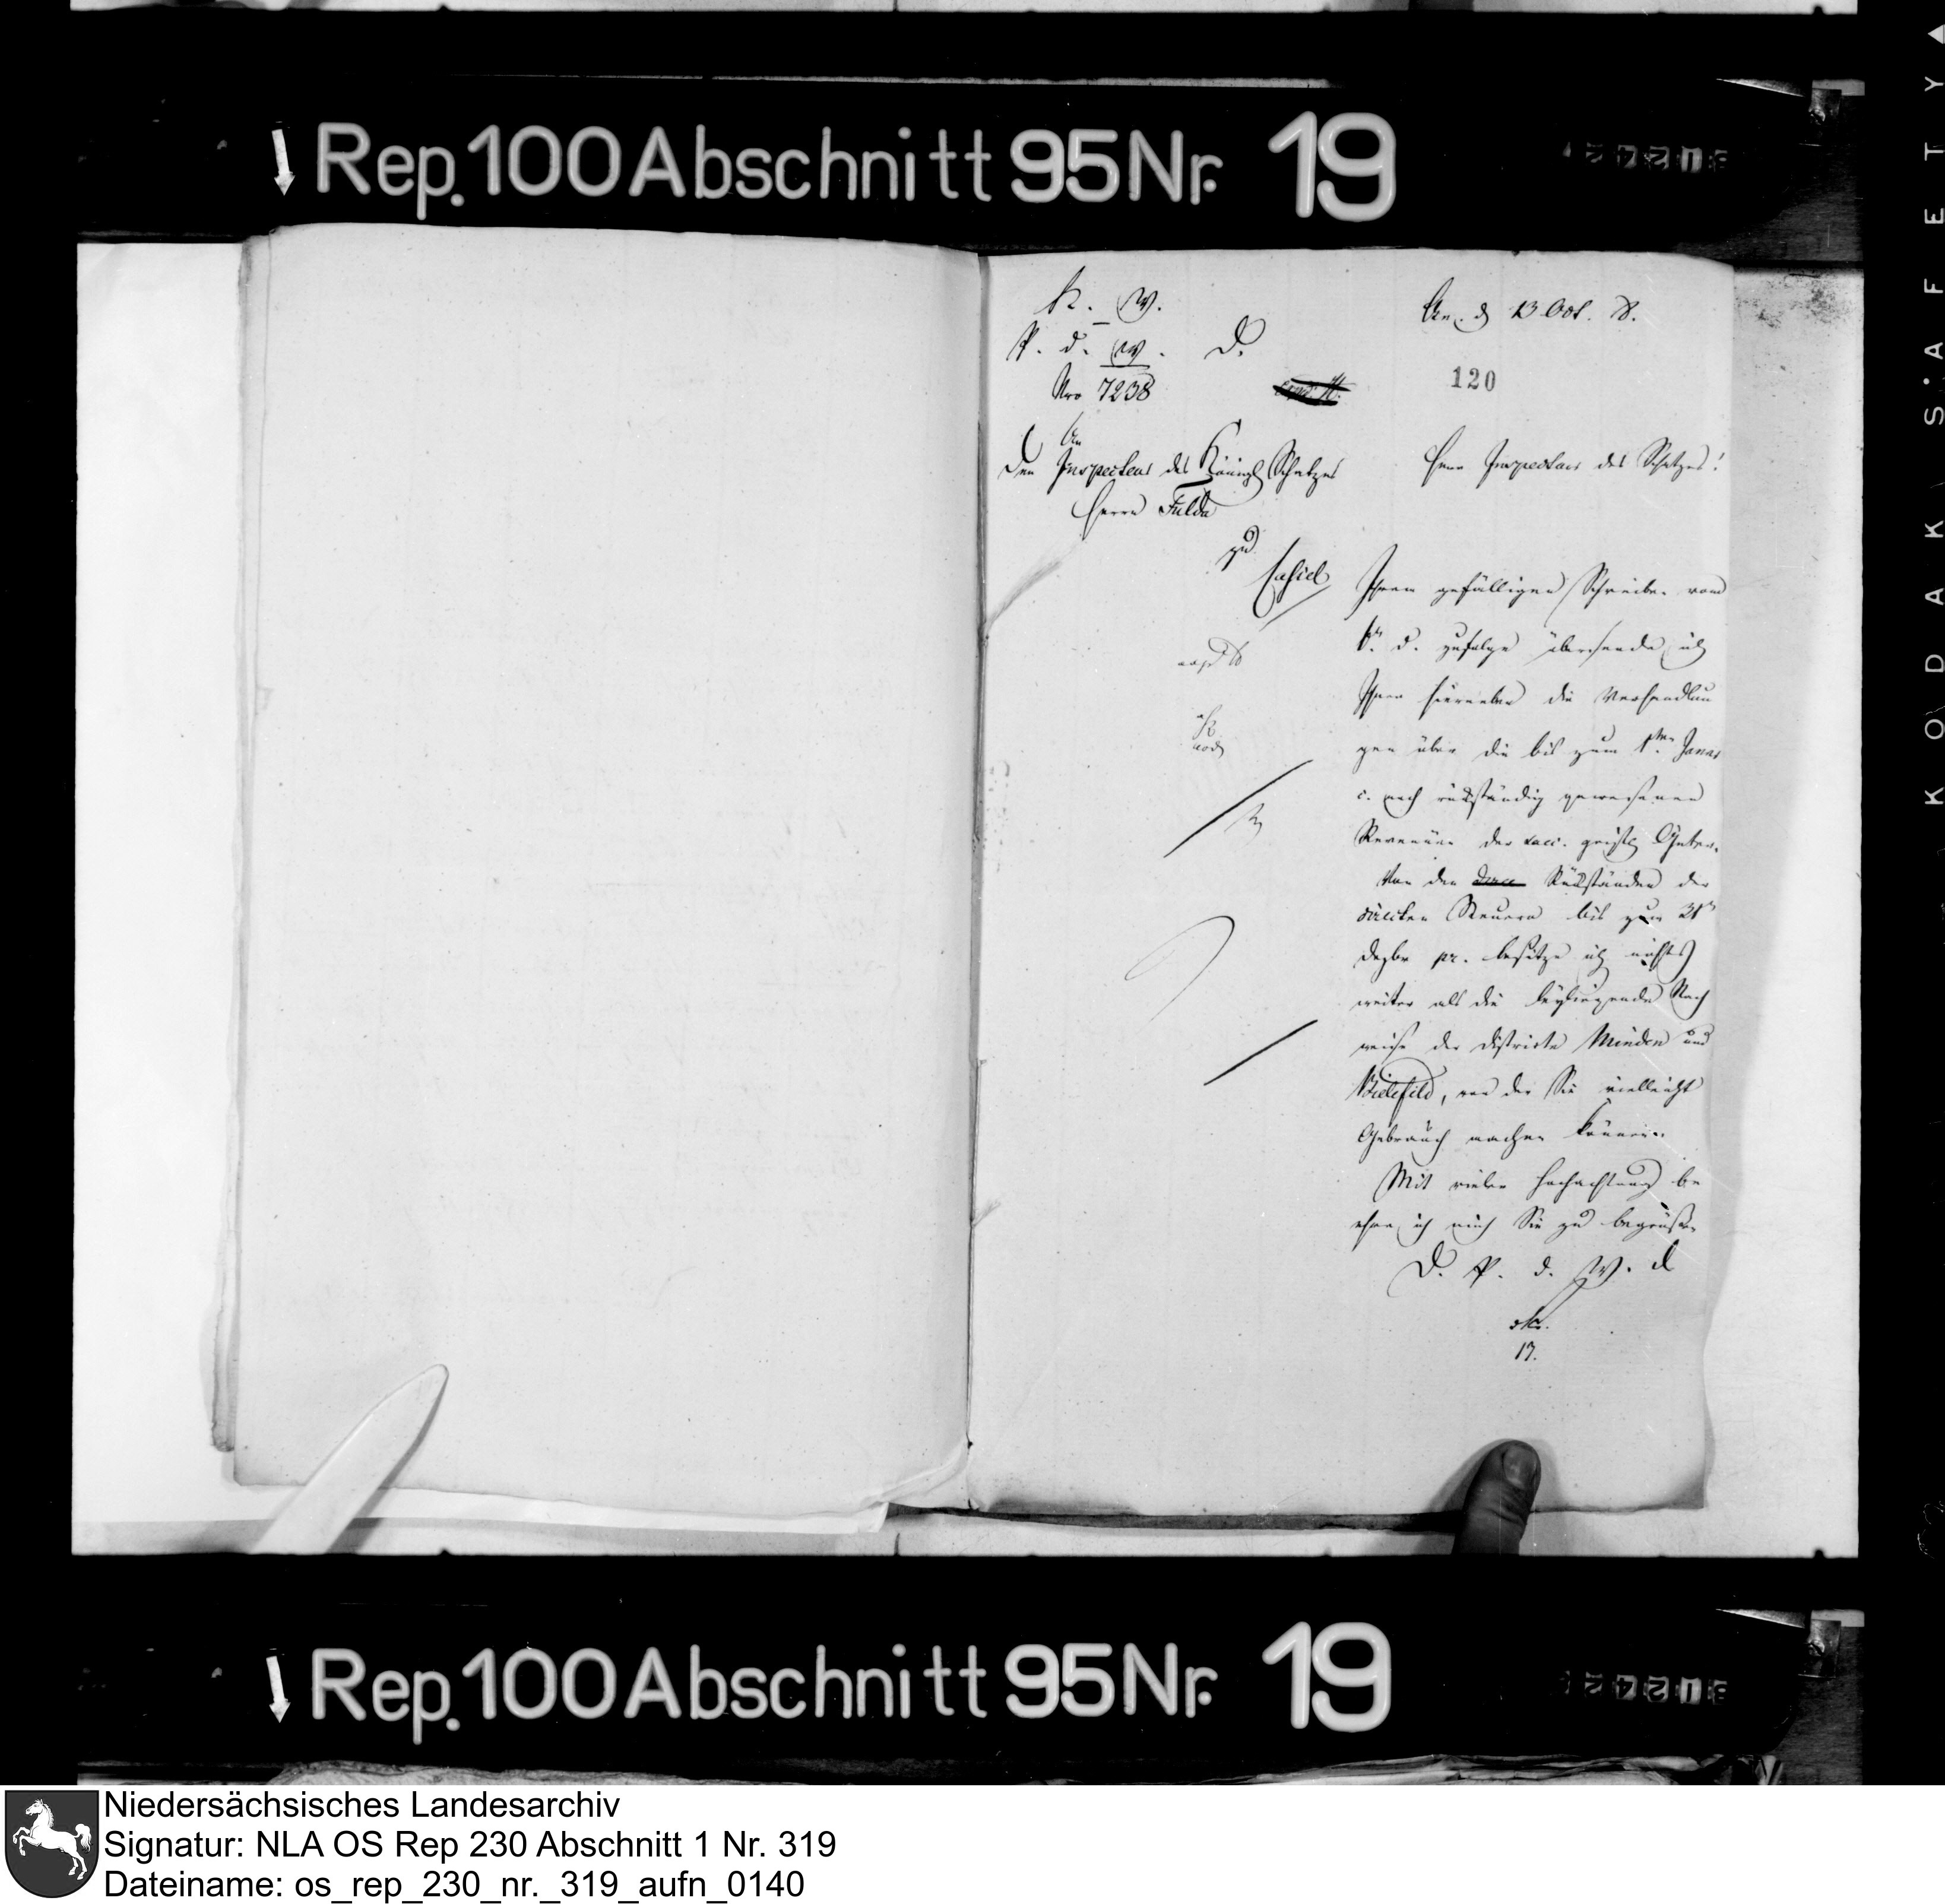 Rep. 100 Abschnitt 95 Nr. 19
K. W.
P. d. W. D.
Nro 7238
An
den Inspecteur des Königl. Schatzes
Herrn Fulda
zu
Cassel
120
Herr Inspecteur des Schatzes!
Ihrem gefälligen Schreiben vom
d. zufolge übersende ich
Ihnen hierneben die Verhandlun
gen über die bis zum 1ten Januar
c. noch rückständig gewesenen
Revenüen der geistl. Güter.
Von den Rückständen der
directen Steuern bis zum 31n
Dezbr pr. besitze ich nichts
weiter als die beyliegende Nach
weise der Districte Minden und
Bielefeld, von der Sie vielleicht
Gebrauch machen können.
Mit vieler Hochachtung be
ehre ich mich Sie zu begrüßen
D. P. d. W. d
17.
Rep. 100 Abschnitt 95 Nr. 19
KODAK SAFETY
Niedersächsisches Landesarchiv
Signatur: NLA OS Rep 230 Abschnitt 1 Nr. 319
Dateiname: os_rep_230_nr._319_aufn_0140